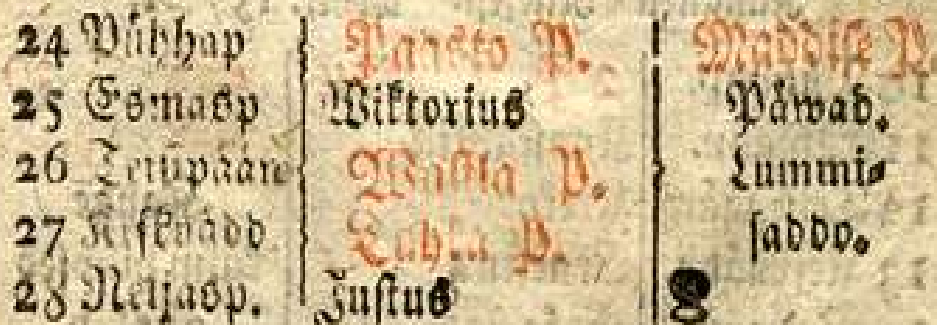 24 Pühhap Paasto P. Maddise P.
25 Esmasp Wiktorius Päwad.
26 Teisipääw Wastla P. Lummi-
27 Kesknädd Tuhka P. saddo.
28 Neljasp. Justus